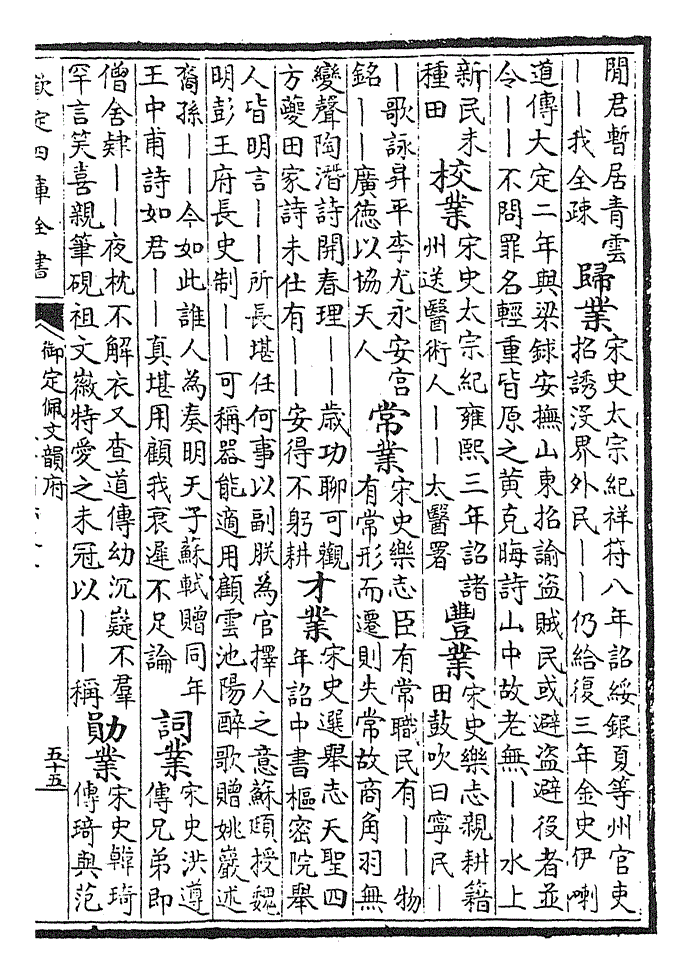 聞君暫居青雲
——我全疎
歸業
宋史太宗紀祥符八年詔綏銀夏等州官吏
招誘沒界外民——仍給復三年金史伊喇
道傳大定二年與梁銶安撫山東招諭盜賊民或避盜避役者並
令——不問罪名輕重皆原之黄克晦詩山中故老無——水上
新民未
種田
校業
宋史太宗紀雍熙三年詔諸
州送醫術人——太醫署
豐業
宋史樂志親耕籍
田鼓吹曰寧民—
—歌詠昇平李尤永安宮
銘——廣德以協天人
常業
宋史樂志臣有常職民有——物
有常形而遷則失常故商角羽無
變聲陶潛詩開春理——歲功聊可觀
方夔田家詩未仕有——安得不躬耕
才業
宋史選舉志天聖四
年詔中書樞密院舉
人皆明言——所長堪任何事以副朕為官擇人之意蘇頲授魏
明彭王府長史制——可稱器能適用顧雲池陽醉歌贈姚巖述
裔孫——今如此誰人為奏明天子蘇軾贈同年
王中甫詩如君——真堪用顧我衰遲不足論
詞業
宋史洪遵
傳兄弟即
僧舍肄——夜枕不解衣又查道傳幼沉嶷不羣
罕言笑喜親筆硯祖文徽特愛之未冠以——稱
勛業
宋史韓琦
傳琦與范
欽定四庫全書
御定佩文韻府
五十五